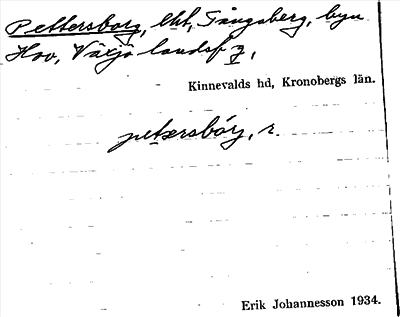 Pettersborg, lht, Tångsberg, byn
Hov, Växjö landsf z,
Kinnevalds hd, Kronobergs län.
petərsbórj, r.
Erik Johannesson 1934.